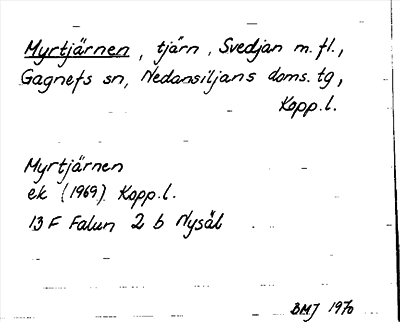 Myrtjärnen, tjärn, Svedjan m.fl.,
Gagnefs sn, Nedansiljans doms. tg,
Kopp.l.
Myrtjärnen
ek (1969) Kopp.l.
13 F Falun 2 b Nysäl
BMJ 1970